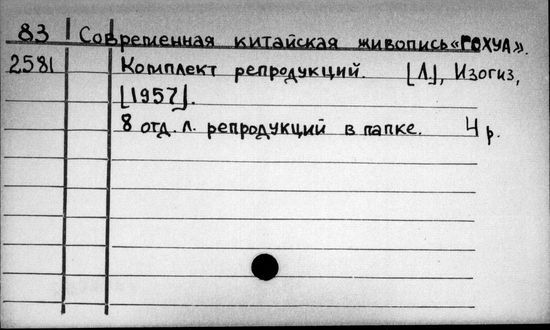 83 Современная китайская живопись «ГОХУА».
2581 Комплект репродукций. [Л.], Изогиз,
[1957].
8 отд. л. репродукций в папке. 4 р.